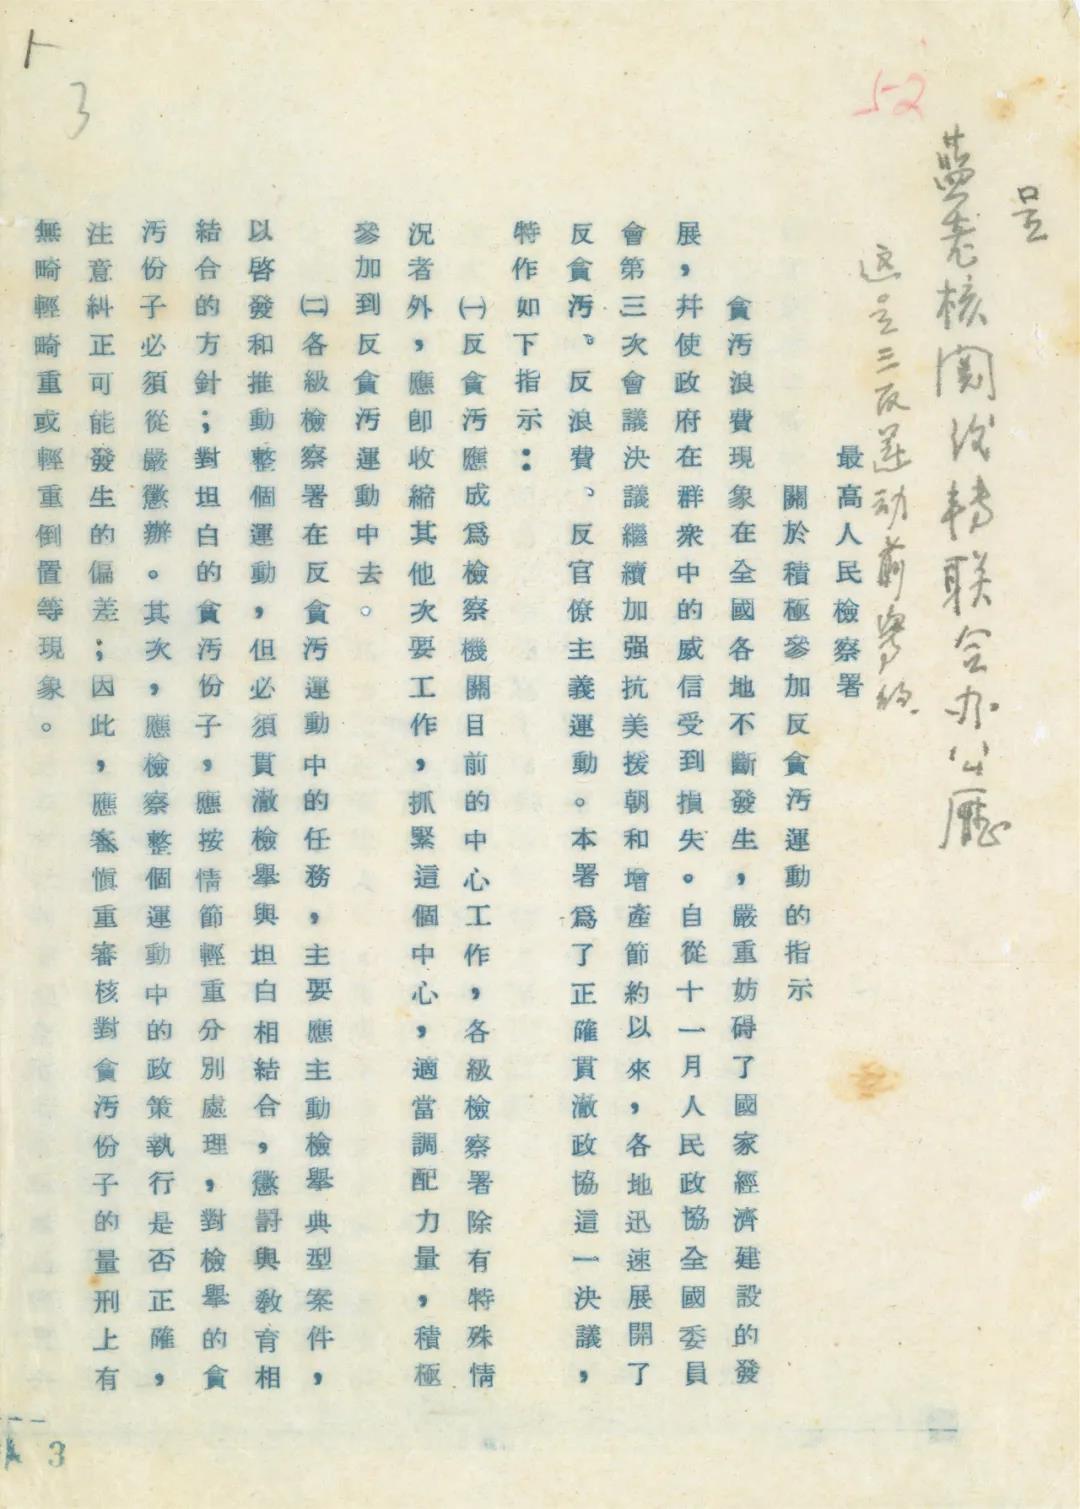 呈
蓝老核阅後转联合办公厅
这是三反运动前写的
52
最高人民檢察署
關於積極參加反貪汚運動的指示
貪汚浪費現象在全國各地不斷發生，嚴重妨碍了國家經濟建設的發
展，幷使政府在群衆中的威信受到損失。自從十一月人民政協全國委員
會第三次會議決議繼續加强抗美援朝和增產節約以來，各地迅速展開了
反貪汚。反浪費、反官僚主義運動。本署爲了正確貫澈政協這一決議，
特作如下指示：
㈠反貪汚應成爲檢察機關目前的中心工作，各級檢察署除有特殊情
況者外，應卽收縮其他次要工作，抓緊這個中心，適當調配力量，積極
參加到反貪汚運動中去。
㈡各級檢察署在反貪汚運動中的任務，主要應主動檢舉典型案件，
以啓發和推動整個運動，但必須貫澈檢舉與坦白相結合，懲罸與敎育相
結合的方針；對坦白的貪汚份子，應按情節輕重分別處理，對檢舉的貪
汚份子必須從嚴懲辦。其次，應檢察整個運動中的政策執行是否正確，
注意糾正可能發生的偏差；因此，應審愼重審核對貪汚份子的量刑上有
無畸輕畸重或輕重倒置等現象。
3
3